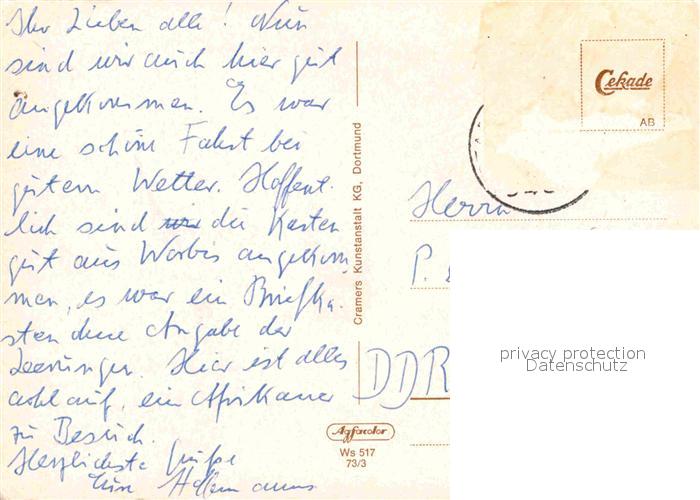 Ihr Lieben alle! Nun
sind wir auch hier gut
angekommen. Es war
eine schöne Fahrt bei
gutem Wetter. Hoffent-
lich sind wir die Karten
gut aus Worbis angekom-
men, es war ein Briefka-
sten ohne Angabe der
Leerungen. Hier ist alles
wohlauf, ein Afrikaner
zu Besuch.
Herzlichste Grüße
Cramers Kunstanstalt KG, Dortmund
Agfacolor
Ws 517
73/3
Cekade
AB
Herrn
P.
DDR
privacy protection
Datenschutz